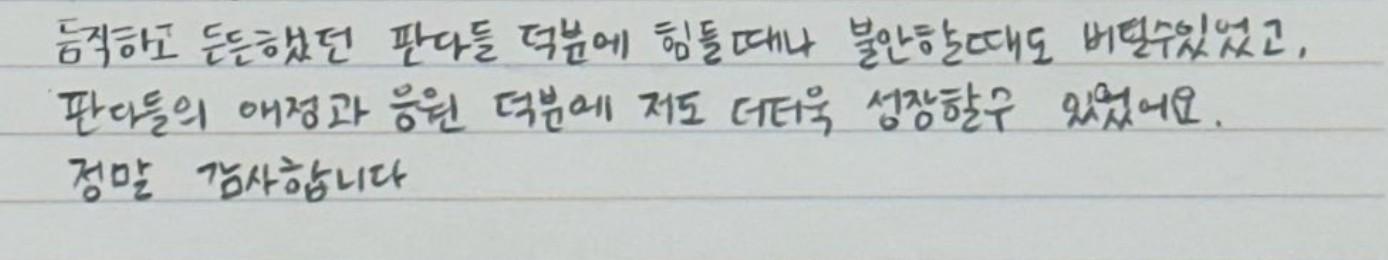 듬직하고 든든했던 판다들 덕분에 힘들때나 불안할때도 버틸수있었고,
판다들의 애정과 응원 덕분에 저도 더더욱 성장할수 있었어요.
정말 감사합니다